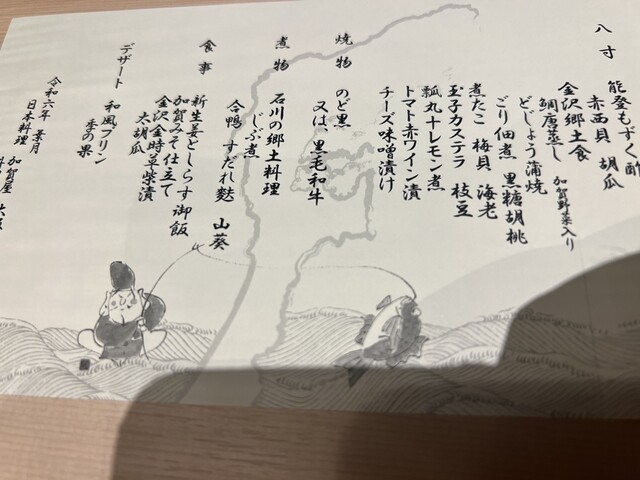 八寸
能登もずく酢
赤西貝 胡瓜
金沢郷土食
鯛唐蒸し 加賀野菜入り
どじょう蒲焼
ごり佃煮 黒糖胡桃
煮たこ 梅貝 海老
玉子カステラ 枝豆
瓢丸十レモン煮
トマト赤ワイン漬
チーズ味噌漬け
焼物 のど黒
又は、黒毛和牛
煮物 石川の郷土料理
じぶ煮
合鴨 すだれ麩 山葵
食事 新生姜としらす御飯
加賀みそ仕立て
金沢金時草柴漬
太胡瓜
デザート 和風プリン
季の果
令和六年 葉月
日本料理 加賀屋